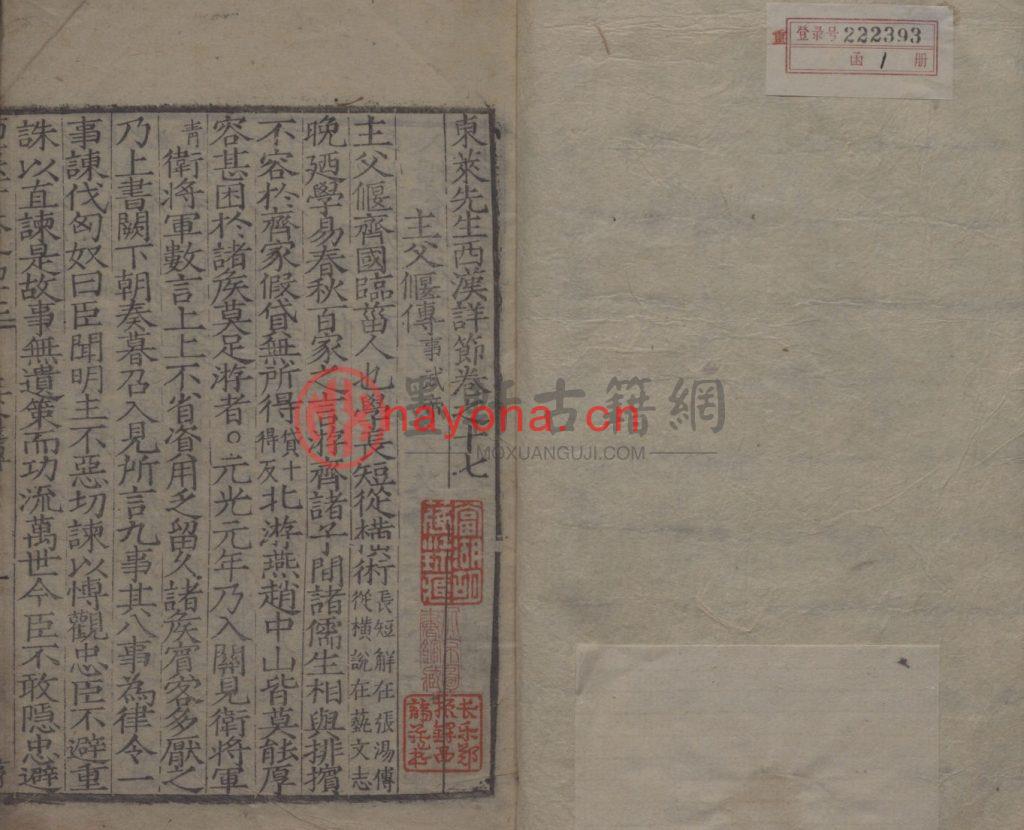 登录号 222393
函 1 册
東萊先生西漢詳節卷之十七
主父偃傳 事武帝
主父偃齊國臨菑人也學長短從横術 長短解在張湯傳 從横說在藝文志
晚廼學易春秋百家之言游齊諸子間諸儒生相與排擯
不容於齊家假貸無所得 貸十得反 北游燕趙中山皆莫能厚
容甚困於諸侯莫足游者○元光元年乃入關見衛將軍
青 衛將軍數言上上不省資用乏留久諸侯賓客多厭之
乃上書闕下朝奏暮召入見所言九事其八事為律令一
事諫伐匈奴曰臣聞明主不惡切諫以愽觀忠臣不避重
誅以直諫是故事無遺策而功流萬世今臣不敢隱忠避
长乐郑振铎西谛藏书
墨軒古籍網
MOXUANGUJI.COM
nayona.cn